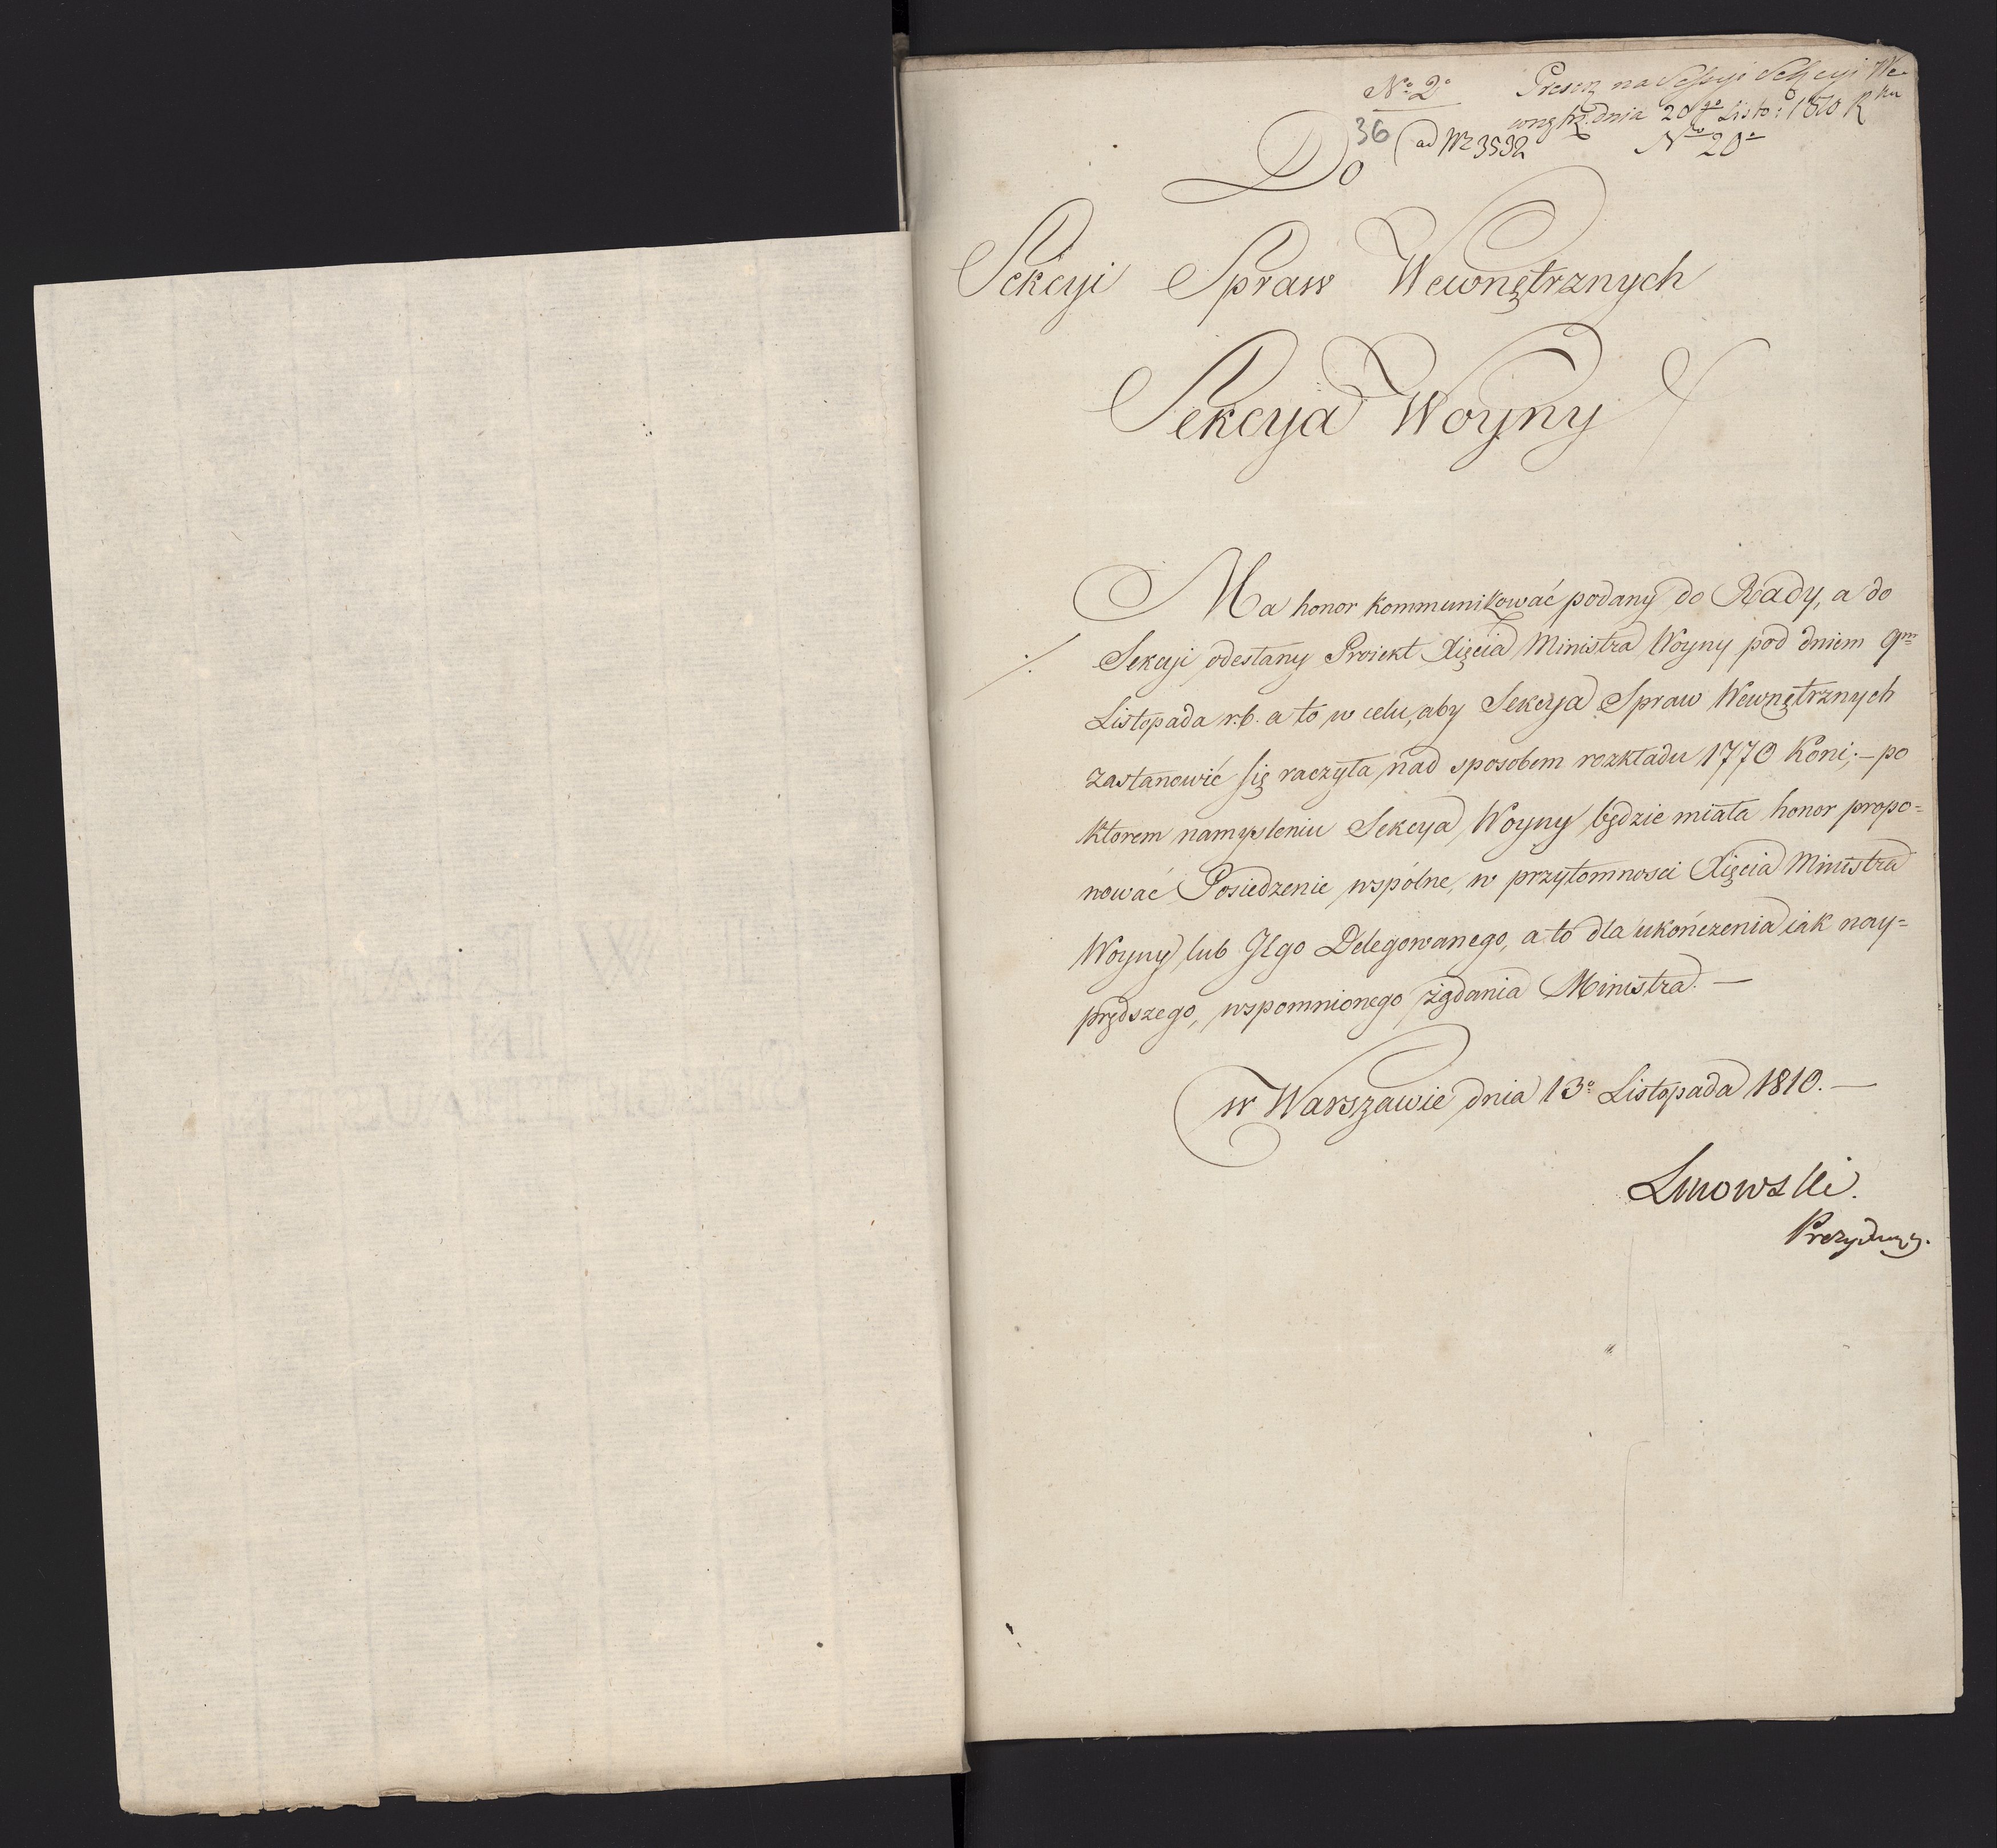 N.º 2º
Presen na Sessyi Sekcyi We-
wnętrz. dnia 20go Listo: 1810 Rku
36
(ad Nr 3592
Nro 20º
Do
Sekcyi Spraw Wewnętrznych
Sekcya Woyny
Ma honor kommunikować podany do Rady, a do
Sekcyi odesłany Proiekt Xięcia Ministra Woyny pod dniem 9m
Listopada r.b. a to w celu, aby Sekcya Spraw Wewnętrznych
zastanowić się raczyła nad sposobem rozkładu 1770 Koni; – po
ktorem namysleniu Sekcya Woyny będzie miała honor propo=
nować Posiedzenie wspólne, w przytomnosci Xięcia Ministra
Woyny lub Jego Delegowanego, a to dla ukończenia iak nay=
prędszego, wspomnionego żądania Ministra. —
w Warszawie dnia 13º Listopada 1810. —
Linowski.